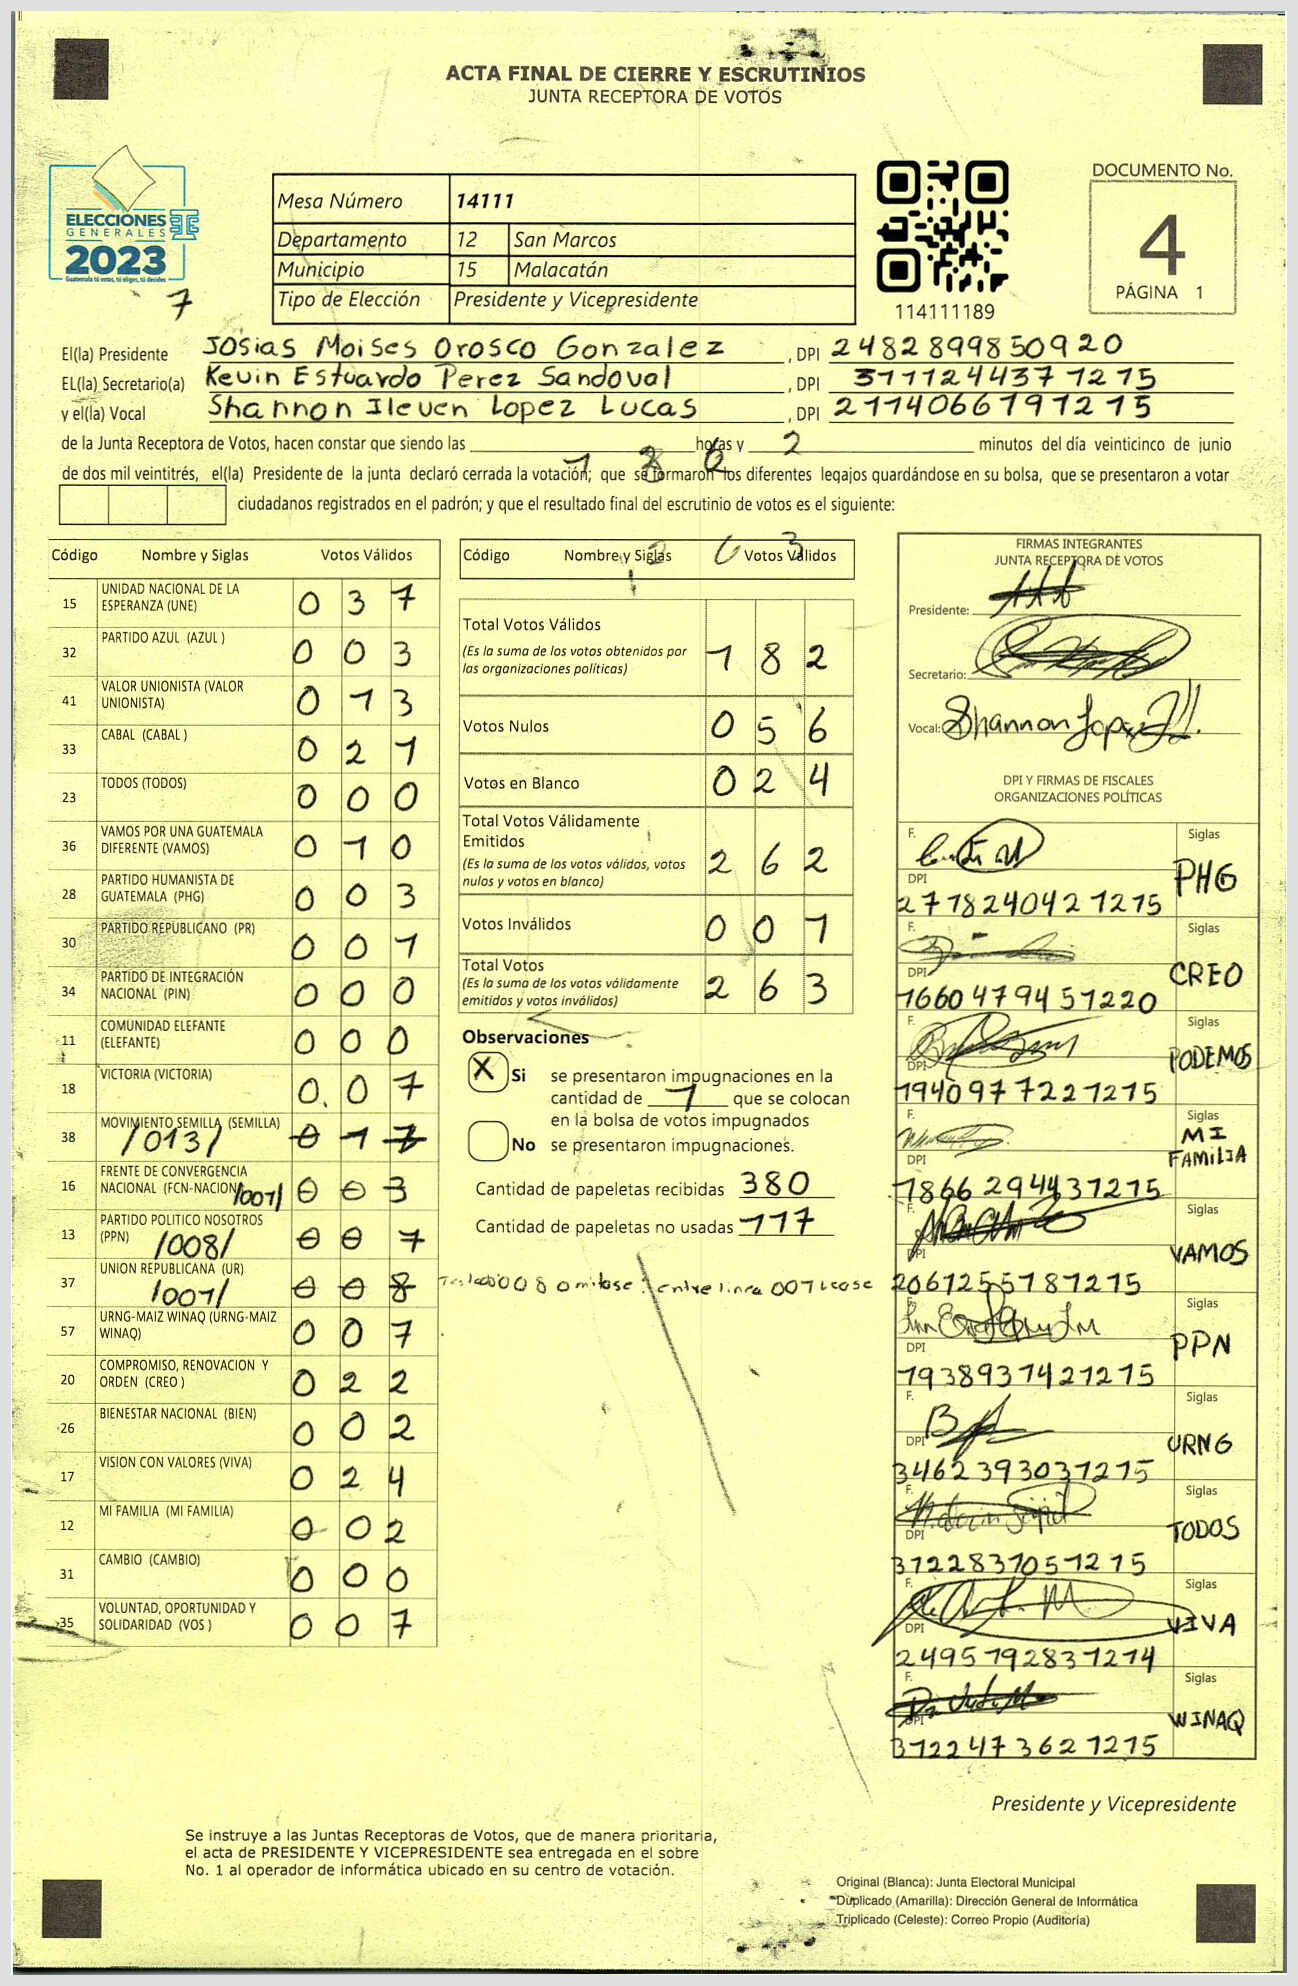 ACTA FINAL DE CIERRE Y ESCRUTINIOS
JUNTA RECEPTORA DE VOTOS
ELECCIONES
GENERALES
2023
Guatemala tú votas, tú eliges, tú decides
7
Mesa Número 14111
Departamento 12 San Marcos
Municipio 15 Malacatán
Tipo de Elección Presidente y Vicepresidente
114111189
DOCUMENTO No.
4
PÁGINA 1
El(la) Presidente Josias Moises Orosco Gonzalez, DPI 2482899850920
EL(la) Secretario(a) Kevin Estuardo Perez Sandoval, DPI 3111244371215
y el(la) Vocal Shannon Ileven Lopez Lucas, DPI 2114066191215
de la Junta Receptora de Votos, hacen constar que siendo las horas y 2 minutos del día veinticinco de junio
de dos mil veintitrés, el(la) Presidente de la junta declaró cerrada la votación; que se formaron los diferentes legajos guardándose en su bolsa, que se presentaron a votar
ciudadanos registrados en el padrón; y que el resultado final del escrutinio de votos es el siguiente:
Código Nombre y Siglas Votos Válidos
15 UNIDAD NACIONAL DE LA ESPERANZA (UNE) 037
32 PARTIDO AZUL (AZUL ) 003
41 VALOR UNIONISTA (VALOR UNIONISTA) 013
33 CABAL (CABAL ) 021
23 TODOS (TODOS) 000
36 VAMOS POR UNA GUATEMALA DIFERENTE (VAMOS) 010
28 PARTIDO HUMANISTA DE GUATEMALA (PHG) 003
30 PARTIDO REPUBLICANO (PR) 001
34 PARTIDO DE INTEGRACIÓN NACIONAL (PIN) 000
11 COMUNIDAD ELEFANTE (ELEFANTE) 000
18 VICTORIA (VICTORIA) 007
38 MOVIMIENTO SEMILLA (SEMILLA) /013/
16 FRENTE DE CONVERGENCIA NACIONAL (FCN-NACION /001/ 003
13 PARTIDO POLITICO NOSOTROS (PPN) /008/ 001
37 UNION REPUBLICANA (UR) /001/ 008
57 URNG-MAIZ WINAQ (URNG-MAIZ WINAQ) 007
20 COMPROMISO, RENOVACION Y ORDEN (CREO ) 022
26 BIENESTAR NACIONAL (BIEN) 002
17 VISION CON VALORES (VIVA) 024
12 MI FAMILIA (MI FAMILIA) 002
31 CAMBIO (CAMBIO) 000
35 VOLUNTAD, OPORTUNIDAD Y SOLIDARIDAD (VOS ) 007
Código Nombre y Siglas Votos Válidos
Total Votos Válidos
(Es la suma de los votos obtenidos por las organizaciones políticas) 182
Votos Nulos 056
Votos en Blanco 024
Total Votos Válidamente Emitidos
(Es la suma de los votos válidos, votos nulos y votos en blanco) 262
Votos Inválidos 001
Total Votos
(Es la suma de los votos válidamente emitidos y votos inválidos) 263
Observaciones
X Si se presentaron impugnaciones en la
cantidad de 1 que se colocan
en la bolsa de votos impugnados
No se presentaron impugnaciones.
Cantidad de papeletas recibidas 380
Cantidad de papeletas no usadas 117
008 omitase: entre linea 001 lease
FIRMAS INTEGRANTES
JUNTA RECEPTORA DE VOTOS
Presidente:
Secretario:
Vocal: Shannon Lopez
DPI Y FIRMAS DE FISCALES
ORGANIZACIONES POLÍTICAS
F. Siglas
DPI PHG
2718240421215
F. Siglas
DPI CREO
1660479451220
F. Siglas
DPI PODEMOS
1940977221215
F. Siglas
DPI MI FAMILIA
1866294431215
F. Siglas
DPI VAMOS
2061255181215
F. Siglas
DPI PPN
1938931421215
F. Siglas
DPI URNG
3462393031215
F. Siglas
DPI TODOS
3122837051215
F. Siglas
DPI VIVA
2495192831214
F. Siglas
DPI WINAQ
3122473621215
Presidente y Vicepresidente
Se instruye a las Juntas Receptoras de Votos, que de manera prioritaria,
el acta de PRESIDENTE Y VICEPRESIDENTE sea entregada en el sobre
No. 1 al operador de informática ubicado en su centro de votación.
Original (Blanca): Junta Electoral Municipal
Duplicado (Amarilla): Dirección General de Informática
Triplicado (Celeste): Correo Propio (Auditoría)